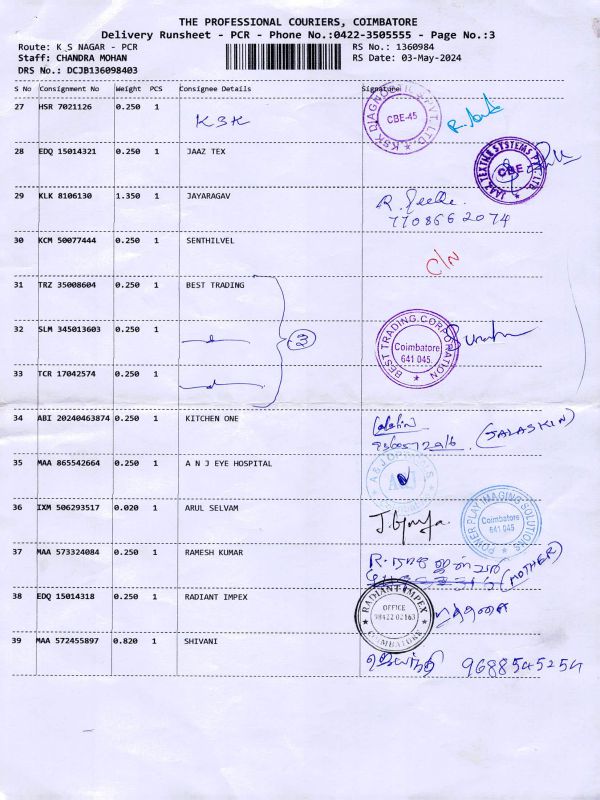 THE PROFESSIONAL COURIERS, COIMBATORE
Delivery Runsheet - PCR - Phone No.:0422-3505555 - Page No.:3
Route: K S NAGAR - PCR
Staff: CHANDRA MOHAN
DRS No.: DCJB136098403
RS No.: 1360984
RS Date: 03-May-2024
S No Consignment No Weight PCS Consignee Details Signature
27 HSR 7021126 0.250 1 KSK
KSK DIAGNOSTIC PVT. LTD. CBE-45
28 EDQ 15014321 0.250 1 JAAZ TEX
JAAZ TEXTILE SYSTEMS PVT. LTD. CBE
29 KLK 8106130 1.350 1 JAYARAGAV
7708662074
30 KCM 50077444 0.250 1 SENTHILVEL C/N
31 TRZ 35008604 0.250 1 BEST TRADING
32 SLM 345013603 0.250 1
3
BEST TRADING CORPORATION Coimbatore 641 045.
33 TCR 17042574 0.250 1
34 ABI 20240463874 0.250 1 KITCHEN ONE
(JALASKIN)
35 MAA 865542664 0.250 1 A N J EYE HOSPITAL
36 IXM 506293517 0.020 1 ARUL SELVAM
POWER PLAY IMAGING SOLUTIONS Coimbatore 641 045
37 MAA 573324084 0.250 1 RAMESH KUMAR
(MOTHER)
38 EDQ 15014318 0.250 1 RADIANT IMPEX
RADIANT IMPEX OFFICE COIMBATORE
39 MAA 572455897 0.820 1 SHIVANI
9688545254